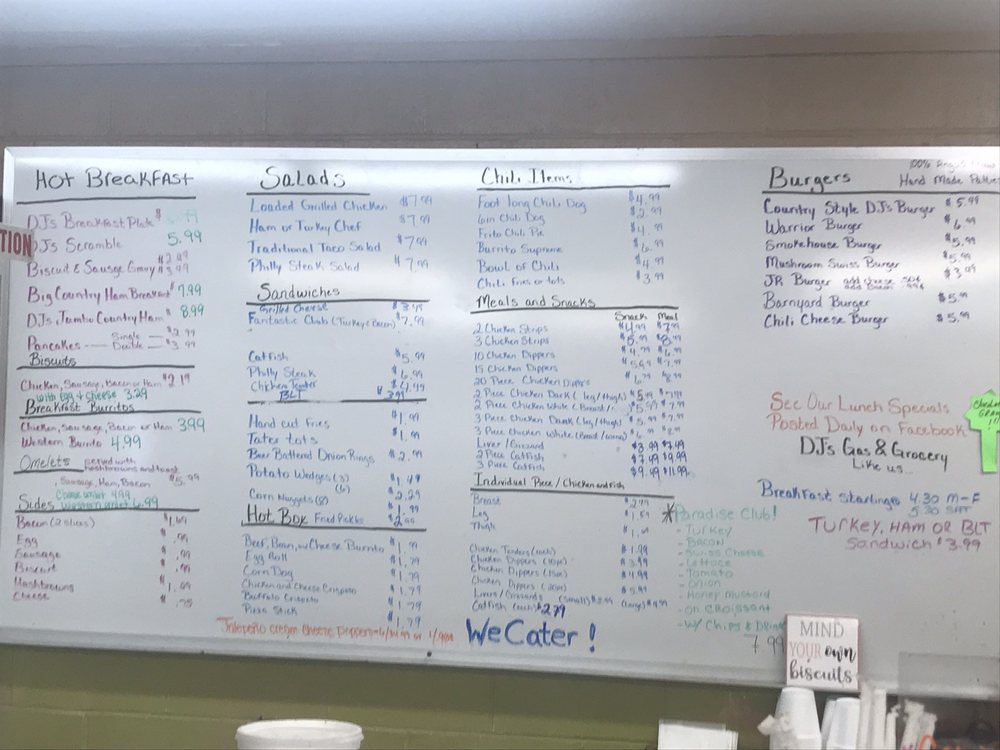 Hot Breakfast
DJ's Breakfast Plate $
DJ's Scramble 5.99
Biscuit & Sausage Gravy
Big Country Ham Breakfast $7.99
DJ's Jumbo Country Ham $8.99
Pancakes Single $2.99
Double $3.99
Biscuits
Chicken, Sausage, Bacon or Ham $2.19
with Egg & Cheese 3.29
Breakfast Burritos
Chicken, Sausage, Bacon or Ham 3.99
Western Burrito 4.99
Omelets served with
hashbrowns and toast
Sausage, Ham, Bacon $5.99
Sides Western 6.99
Bacon (2 slices) $1.69
Egg .99
Sausage .99
Biscuit .99
Hashbrowns
Cheese .75
Salads
Loaded Grilled Chicken $7.99
Ham or Turkey Chef $7.99
Traditional Taco Salad $7.99
Philly Steak Salad $7.99
Sandwiches
Grilled Cheese $3.49
Fantastic Club (Turkey & Bacon) $7.99
Catfish $5.99
Philly Steak $6.99
Chicken Tender $4.49
BLT 3.99
Hand cut fries $1.99
Tater tots $1.99
Beer Battered Onion Rings $2.99
Potato Wedges (3) $1.49
(6) $2.29
Corn Nuggets (8) $1.99
Hot Box Fried Pickles $2.99
Beef, Bean, or Cheese Burrito $1.99
Egg Roll $1.79
Corn Dog $1.79
Chicken and Cheese Crispito $1.79
Buffalo Crispito $1.79
Pizza Stick $1.79
Jalapeño cream cheese poppers
Chili Items
Foot long Chili Dog $4.99
6in Chili Dog $2.99
Frito Chili Pie $4.99
Burrito Supreme $6.99
Bowl of Chili $4.99
Chili Fries or tots $3.99
Meals and Snacks
Snack Meal
2 Chicken Strips $4.99 $7.99
3 Chicken Strips
10 Chicken Dippers
15 Chicken Dippers
20 Piece Chicken Dippers
2 Piece Chicken Dark (leg/thigh)
2 Piece Chicken White (Breast/
3 Piece Chicken Dark (leg/thigh)
3 Piece Chicken White (Breast/
Liver/Gizzard $3.99 $7.49
2 Piece Catfish $9.99
3 Piece Catfish $9.49 $11.99
Individual Piece / Chicken and Fish
Breast $2.99
Leg $1.59
Thigh
Chicken Tenders (each) $1.99
Chicken Dippers (10pc) $3.99
Chicken Dippers (15pc) $4.99
Chicken Dippers (20pc) $5.99
Livers/Gizzards (small) (large)
Catfish (each) $2.79
We Cater!
*Paradise Club!
- Turkey
- Bacon
- Swiss Cheese
- Lettuce
- Tomato
- Onion
- Honey mustard
- on croissant
- w/ Chips & Drink
7.99
100%
Burgers Hand Made Patties
Country Style DJ's Burger $5.99
Warrior Burger $6.99
Smokehouse Burger $5.99
Mushroom Swiss Burger $5.99
JR Burger add cheese $3.99
add Bacon
Barnyard Burger $5.99
Chili Cheese Burger $5.99
See Our Lunch Specials
Posted Daily on Facebook
DJ's Gas & Grocery
Like us...
Breakfast Starting @ 4:30 M-F
5:30 SAT
Turkey, Ham or BLT
Sandwich $3.99
TION
MIND
YOUR own
biscuits